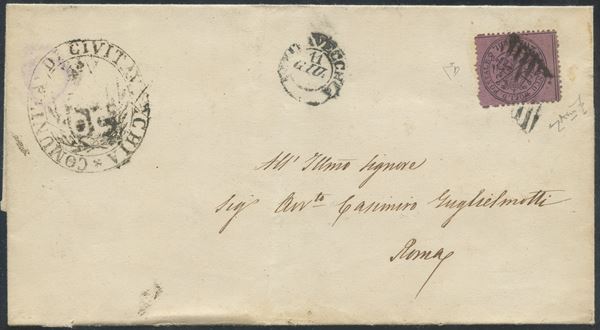 COMUNITA DI CIVITAVECCHIA
CIVITAVECCHIA
11
GIU
All' Illmo Signore
Sig Avvto Casimiro Guglielmotti
Roma